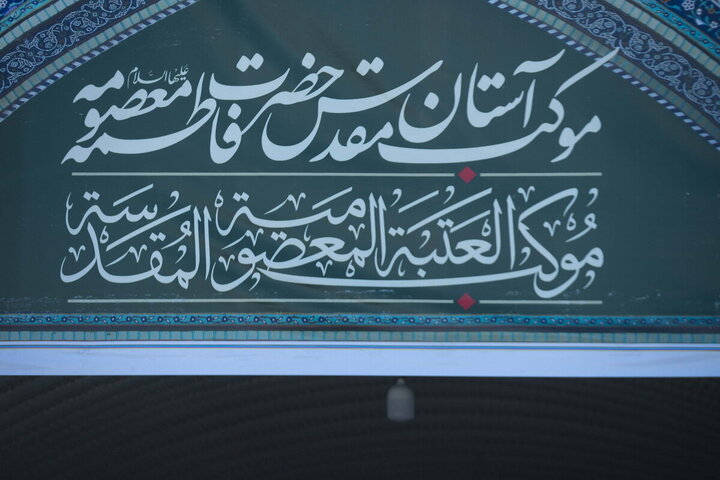 موکب آستان مقدس حضرت فاطمه معصومه علیها السلام
مُوكب العَتَبة المَعصُومية المُقَدسة